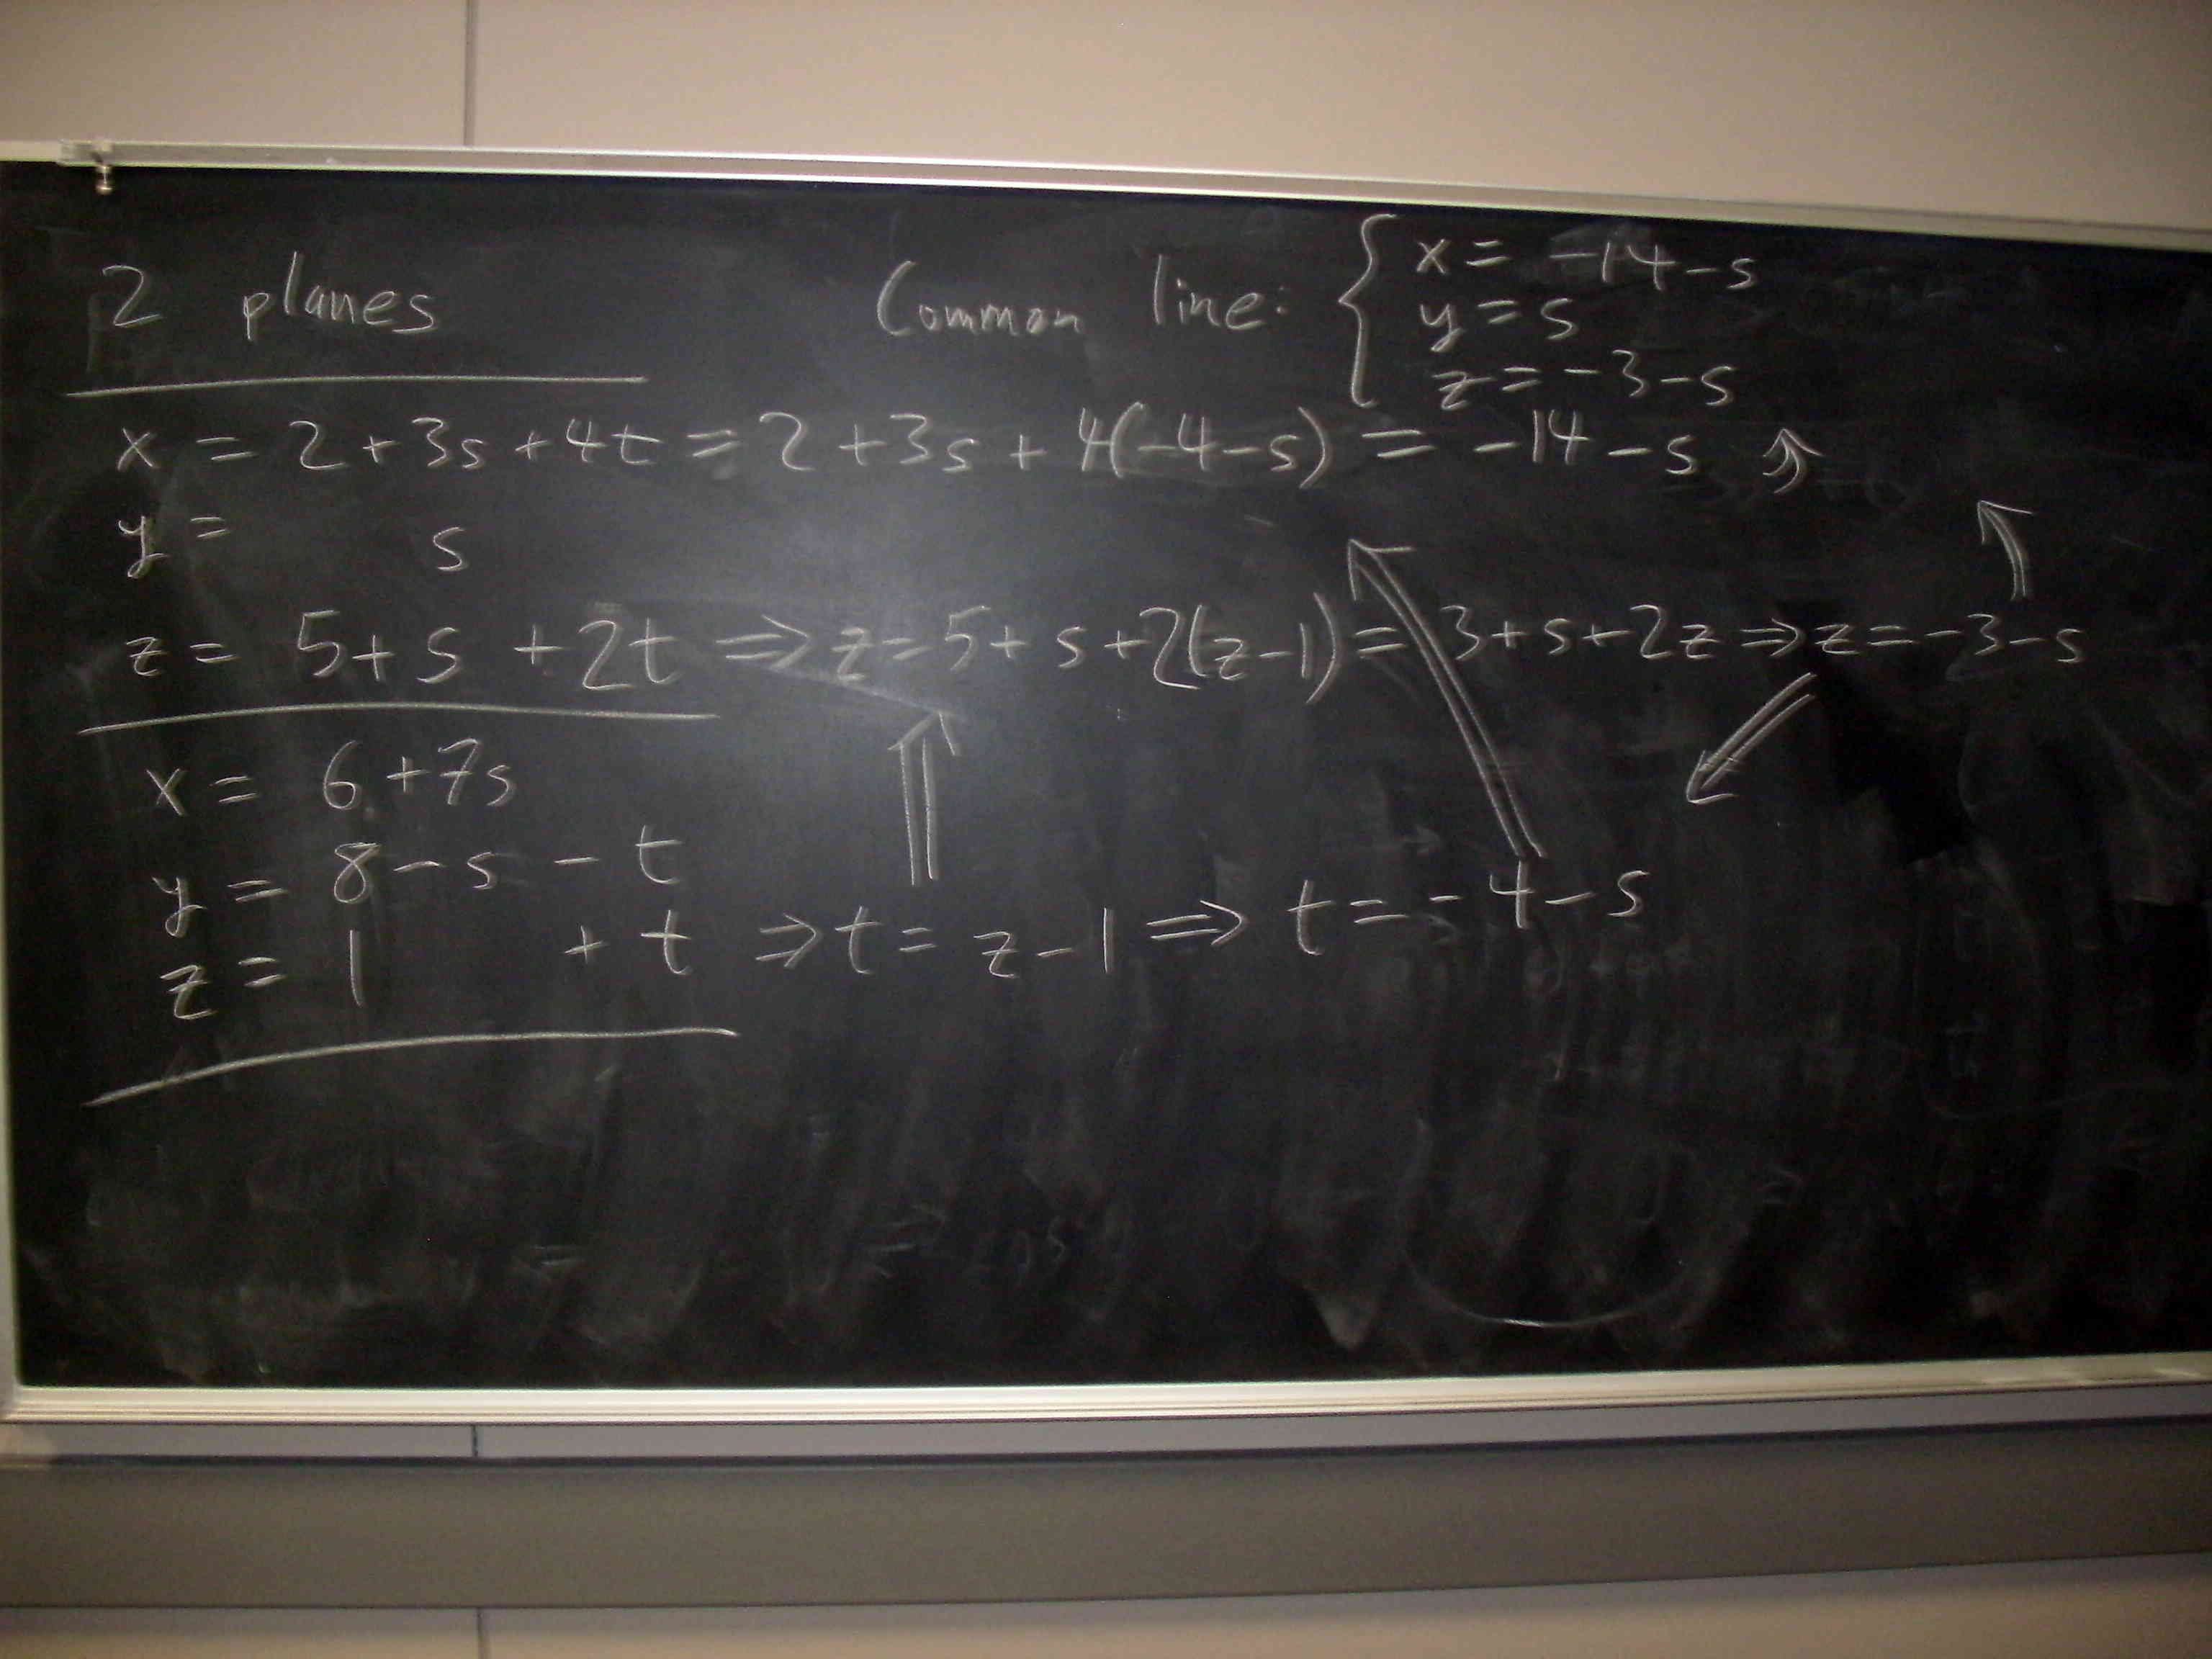 2 planes
Common line: { x = -14-s
y = s
z = -3-s
x = 2+3s+4t = 2+3s+4(-4-s) = -14-s
y = s
z = 5+s+2t ⇒ z = 5+s+2(z-1) = 3+s+2z ⇒ z = -3-s
x = 6+7s
y = 8-s-t
z = 1 +t ⇒ t = z-1 ⇒ t = -4-s